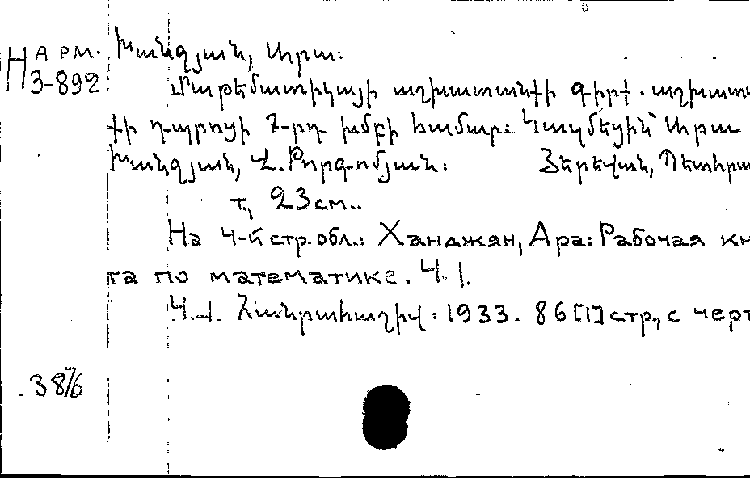 Н АРМ.
3-892
Խանզյան, Արա:
Մաթեմատիկայի աշխատանքի գիրք. աշխատա
քի դպրոցի 7-րդ խմբի համար: Կազմեցին՝ Արա
Խանզյան, Հ. Թորգոմյան: Յերեվան, Պետհրա
т., 23 см..
На 4-й стр. обл.: Ханджян, Ара: Рабочая кн
га по математике. Ч. 1.
Ч. 1. Հանրահաշիվ: 1933. 86 [1] стр., с черт
3876